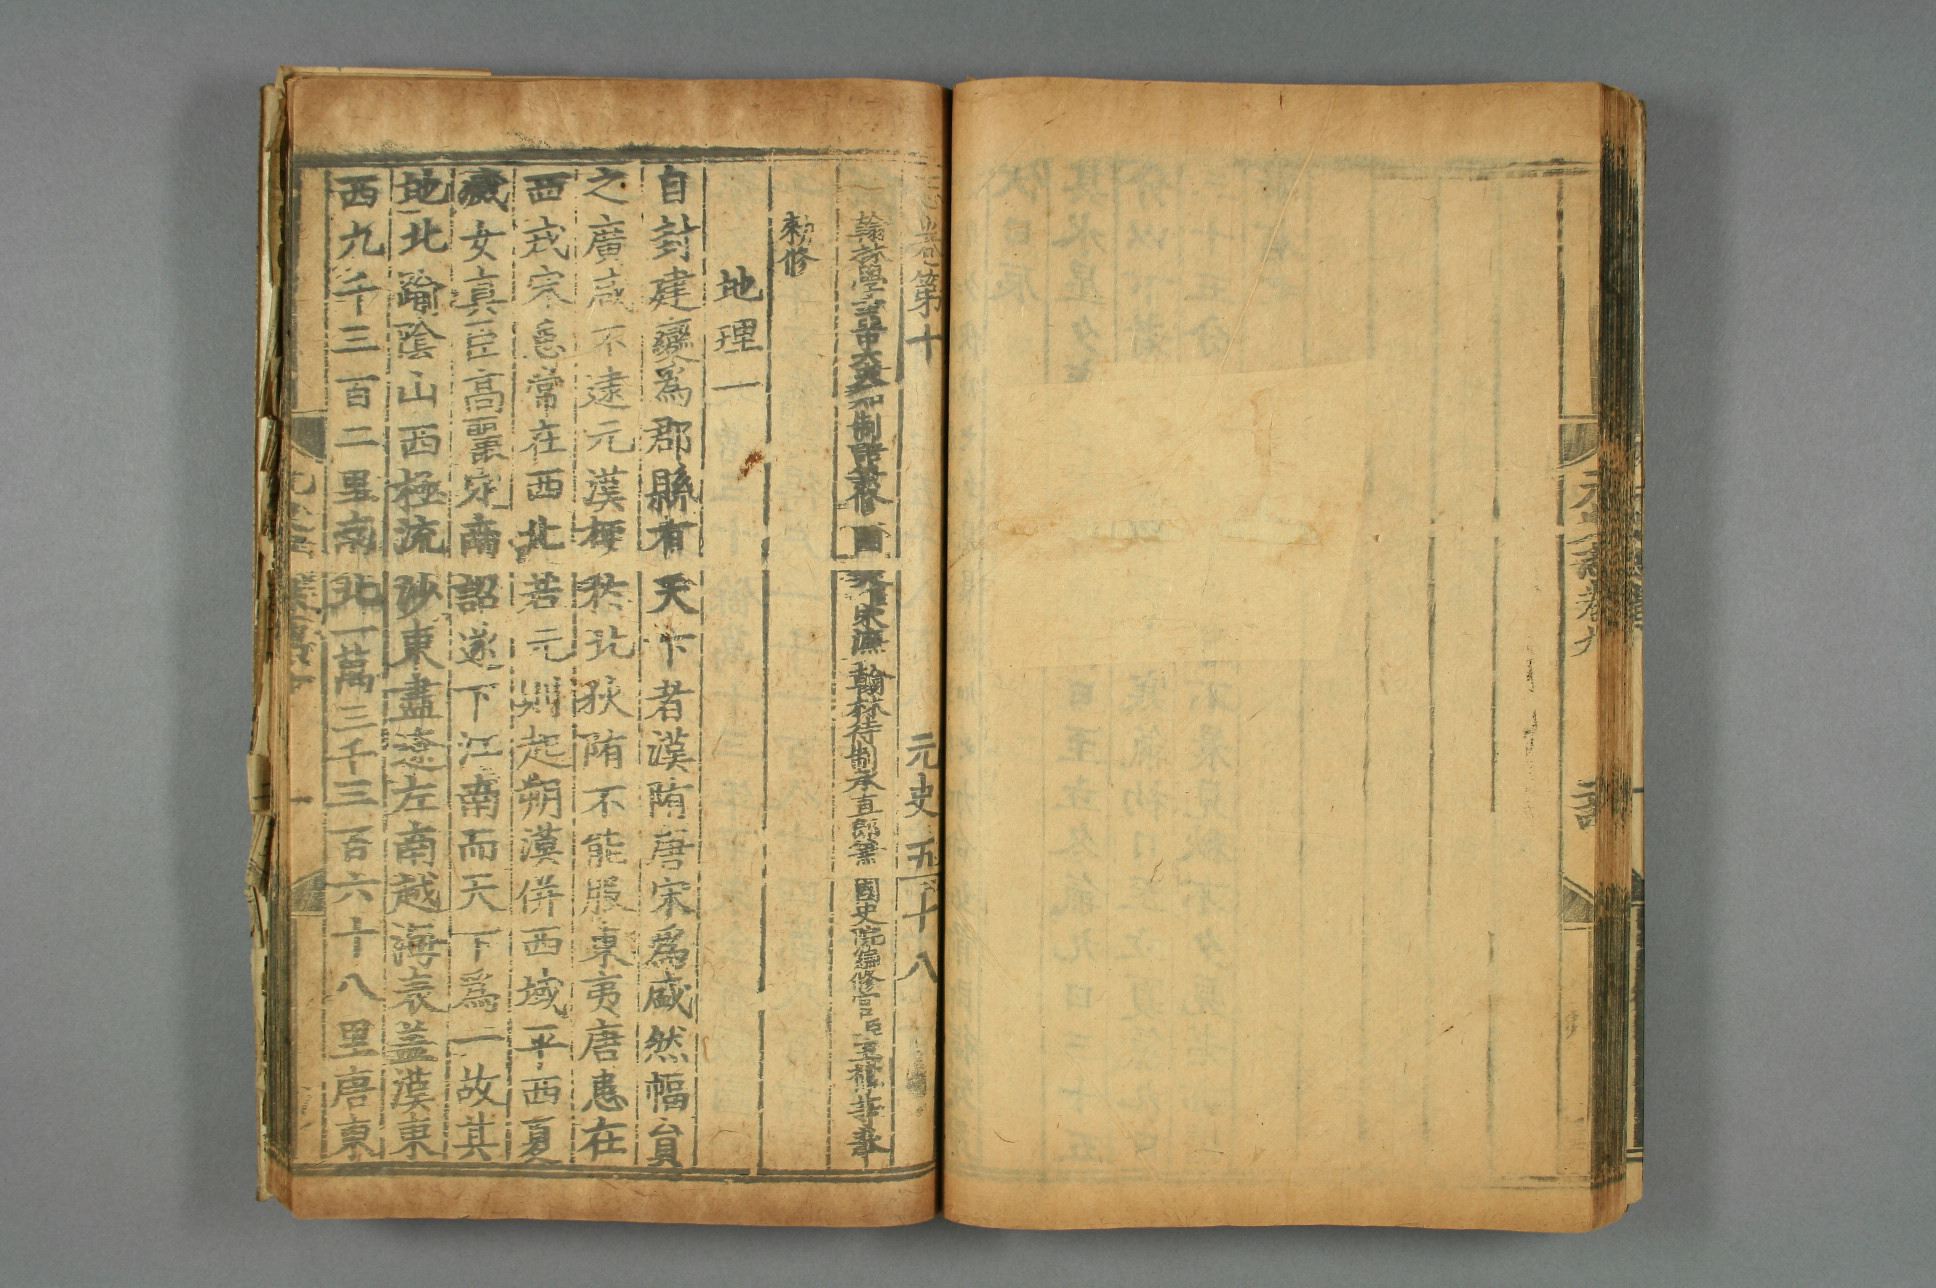 志卷第十 元史五十八
翰林學士亞中大夫知制誥兼修國史臣宋濂翰林待制承直郎兼國史院編修官臣王褘等奉
勑修
地理一
自封建變為郡縣有天下者漢隋唐宋為盛然幅員
之廣咸不逮元漢梗於北狄隋不能服東夷唐患在
西戎宋患常在西北若元則起朔漠併西域平西夏
滅女真臣高麗定南詔遂下江南而天下為一故其
地北踰陰山西極流沙東盡遼左南越海表蓋漢東
西九千三百二里南北一萬三千三百六十八里唐東